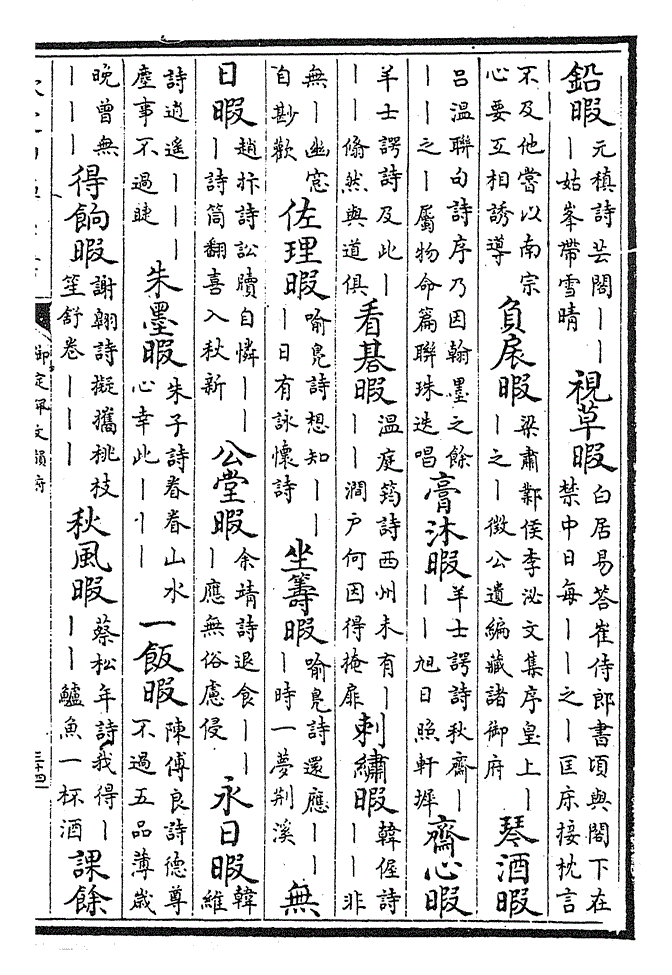 鉛暇
元稹詩芸閣｜｜
｜姑峯帶雪晴
視草暇
白居易答崔侍郎書頃與閣下在
禁中日每｜｜之｜匡床接枕言
不及他當以南宗
心要互相誘導
負扆暇
梁肅鄴侯李泌文集序皇上｜
｜之｜徵公遺編藏諸御府
琴酒暇
呂溫聯句詩序乃因翰墨之餘
｜｜之｜屬物命篇聯珠迭唱
膏沐暇
羊士諤詩秋齋｜
｜｜旭日照軒墀
齋心暇
羊士諤詩及此｜
｜｜翛然與道俱
看碁暇
溫庭筠詩西州未有｜
｜｜澗户何因得掩扉
刺繡暇
韓偓詩
｜｜非
無｜幽窓
自斟歡
佐理暇
喻鳧詩想知｜｜
｜日有詠懷詩
坐籌暇
喻鳧詩還應｜｜
｜時一夢荆溪
無
日暇
趙抃詩訟牘自憐｜｜
｜詩筒翻喜入秋新
公堂暇
余靖詩退食｜｜
｜應無俗慮侵
永日暇
韓
維
詩逍遥｜｜｜
塵事不過睫
朱墨暇
朱子詩眷眷山水
心幸此｜｜｜
一飯暇
陳傅良詩德尊
不過五品薄歲
晚曾無
｜｜｜
得餉暇
謝翶詩擬攜桃枝
笙舒卷｜｜｜
秋風暇
蔡松年詩我得｜
｜｜鱸魚一杯酒
課餘
御定佩文韻府
三十四